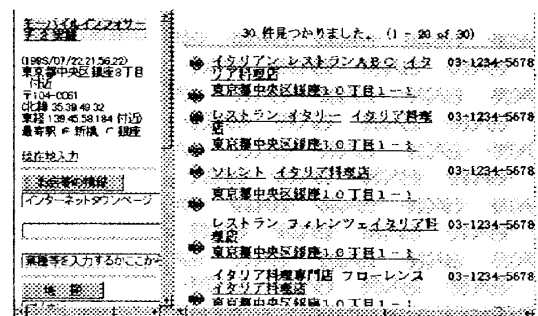 モーバイルインフォサー
チ2実験
東京都中央区銀座8丁目
付近
〒104-0061
北緯 35.39.49.32
東経 139.45.58.184 付近
現在地入力
お店等の情報
インターネットタウンページ
業種等を入力するかここから
地 図
30 件見つかりました。 (1 - 20 of 30)
イタリアン レストランABC イタ 03-1234-5678
リア料理店
東京都中央区銀座10丁目1-1
レストラン イタリー イタリア料理 03-1234-5678
店
東京都中央区銀座10丁目1-1
ソレント イタリア料理店 03-1234-5678
東京都中央区銀座10丁目1-1
レストラン フィレンツェイタリア料 03-1234-5678
理店
東京都中央区銀座10丁目1-1
イタリア料理専門店 フローレンス 03-1234-5678
イタリア料理店
東京都中央区銀座10丁目1-1